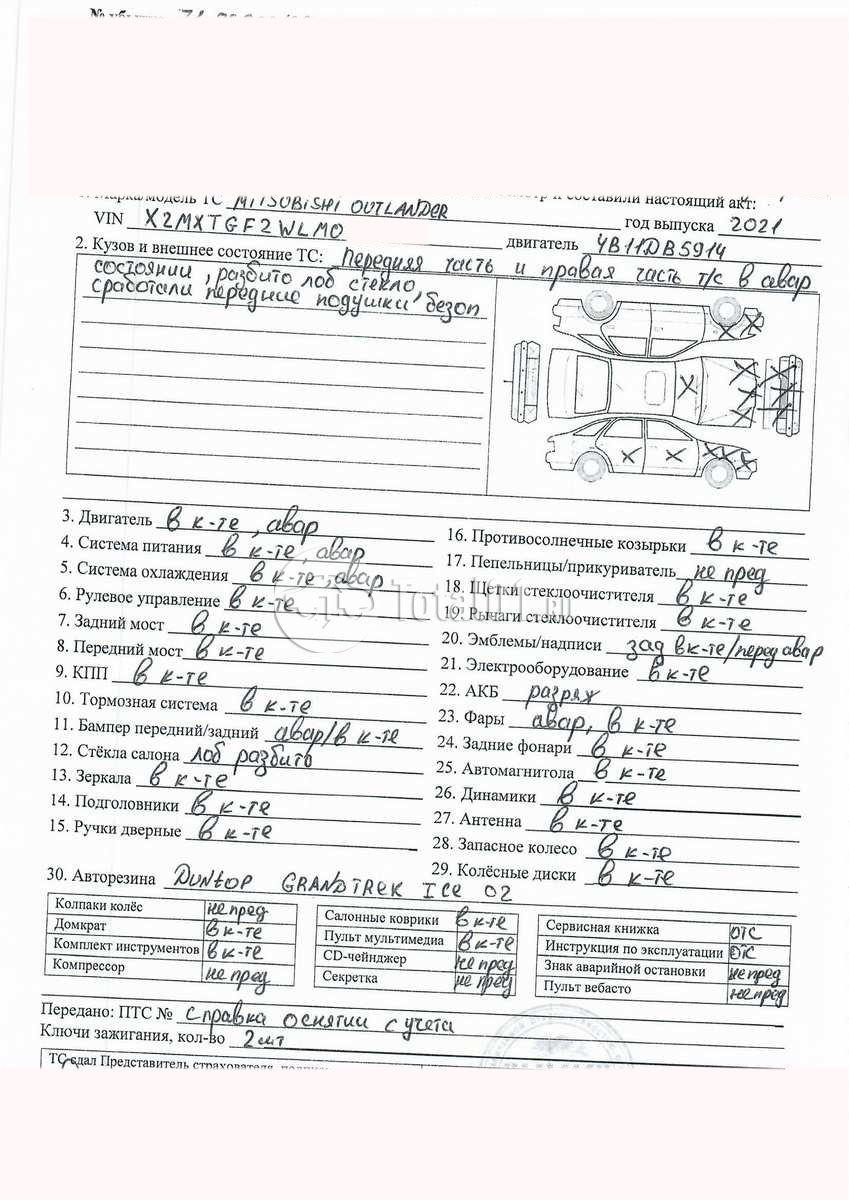 1. Марка/модель ТС MITSUBISHI OUTLANDER составили настоящий акт:
VIN X2MXTGF2WLM0 год выпуска 2021
двигатель 4B11DB5914
2. Кузов и внешнее состояние ТС: Передняя часть и правая часть т/с в авар
состоянии, разбито лоб стекло,
сработали передние подушки безоп
3. Двигатель в к-те, авар
4. Система питания в к-те, авар
5. Система охлаждения в к-те, авар
6. Рулевое управление в к-те
7. Задний мост в к-те
8. Передний мост в к-те
9. КПП в к-те
10. Тормозная система в к-те
11. Бампер передний/задний авар/в к-те
12. Стёкла салона лоб разбито
13. Зеркала в к-те
14. Подголовники в к-те
15. Ручки дверные в к-те
16. Противосолнечные козырьки в к-те
17. Пепельницы/прикуриватель не пред
18. Щетки стеклоочистителя в к-те
19. Рычаги стеклоочистителя в к-те
20. Эмблемы/надписи зад в к-те/перед авар
21. Электрооборудование в к-те
22. АКБ разряж
23. Фары авар, в к-те
24. Задние фонари в к-те
25. Автомагнитола в к-те
26. Динамики в к-те
27. Антенна в к-те
28. Запасное колесо в к-те
29. Колёсные диски в к-те
Total01.ru
30. Авторезина DUNLOP GRANDTREK ICE 02
Колпаки колёс не пред
Домкрат в к-те
Комплект инструментов в к-те
Компрессор не пред
Салонные коврики в к-те
Пульт мультимедиа в к-те
CD-чейнджер не пред
Секретка не пред
Сервисная книжка ОТС
Инструкция по эксплуатации ОТС
Знак аварийной остановки не пред
Пульт вебасто не пред
Передано: ПТС № справка о снятии с учета
Ключи зажигания, кол-во 2 шт
ТС сдал Представитель страхователя,